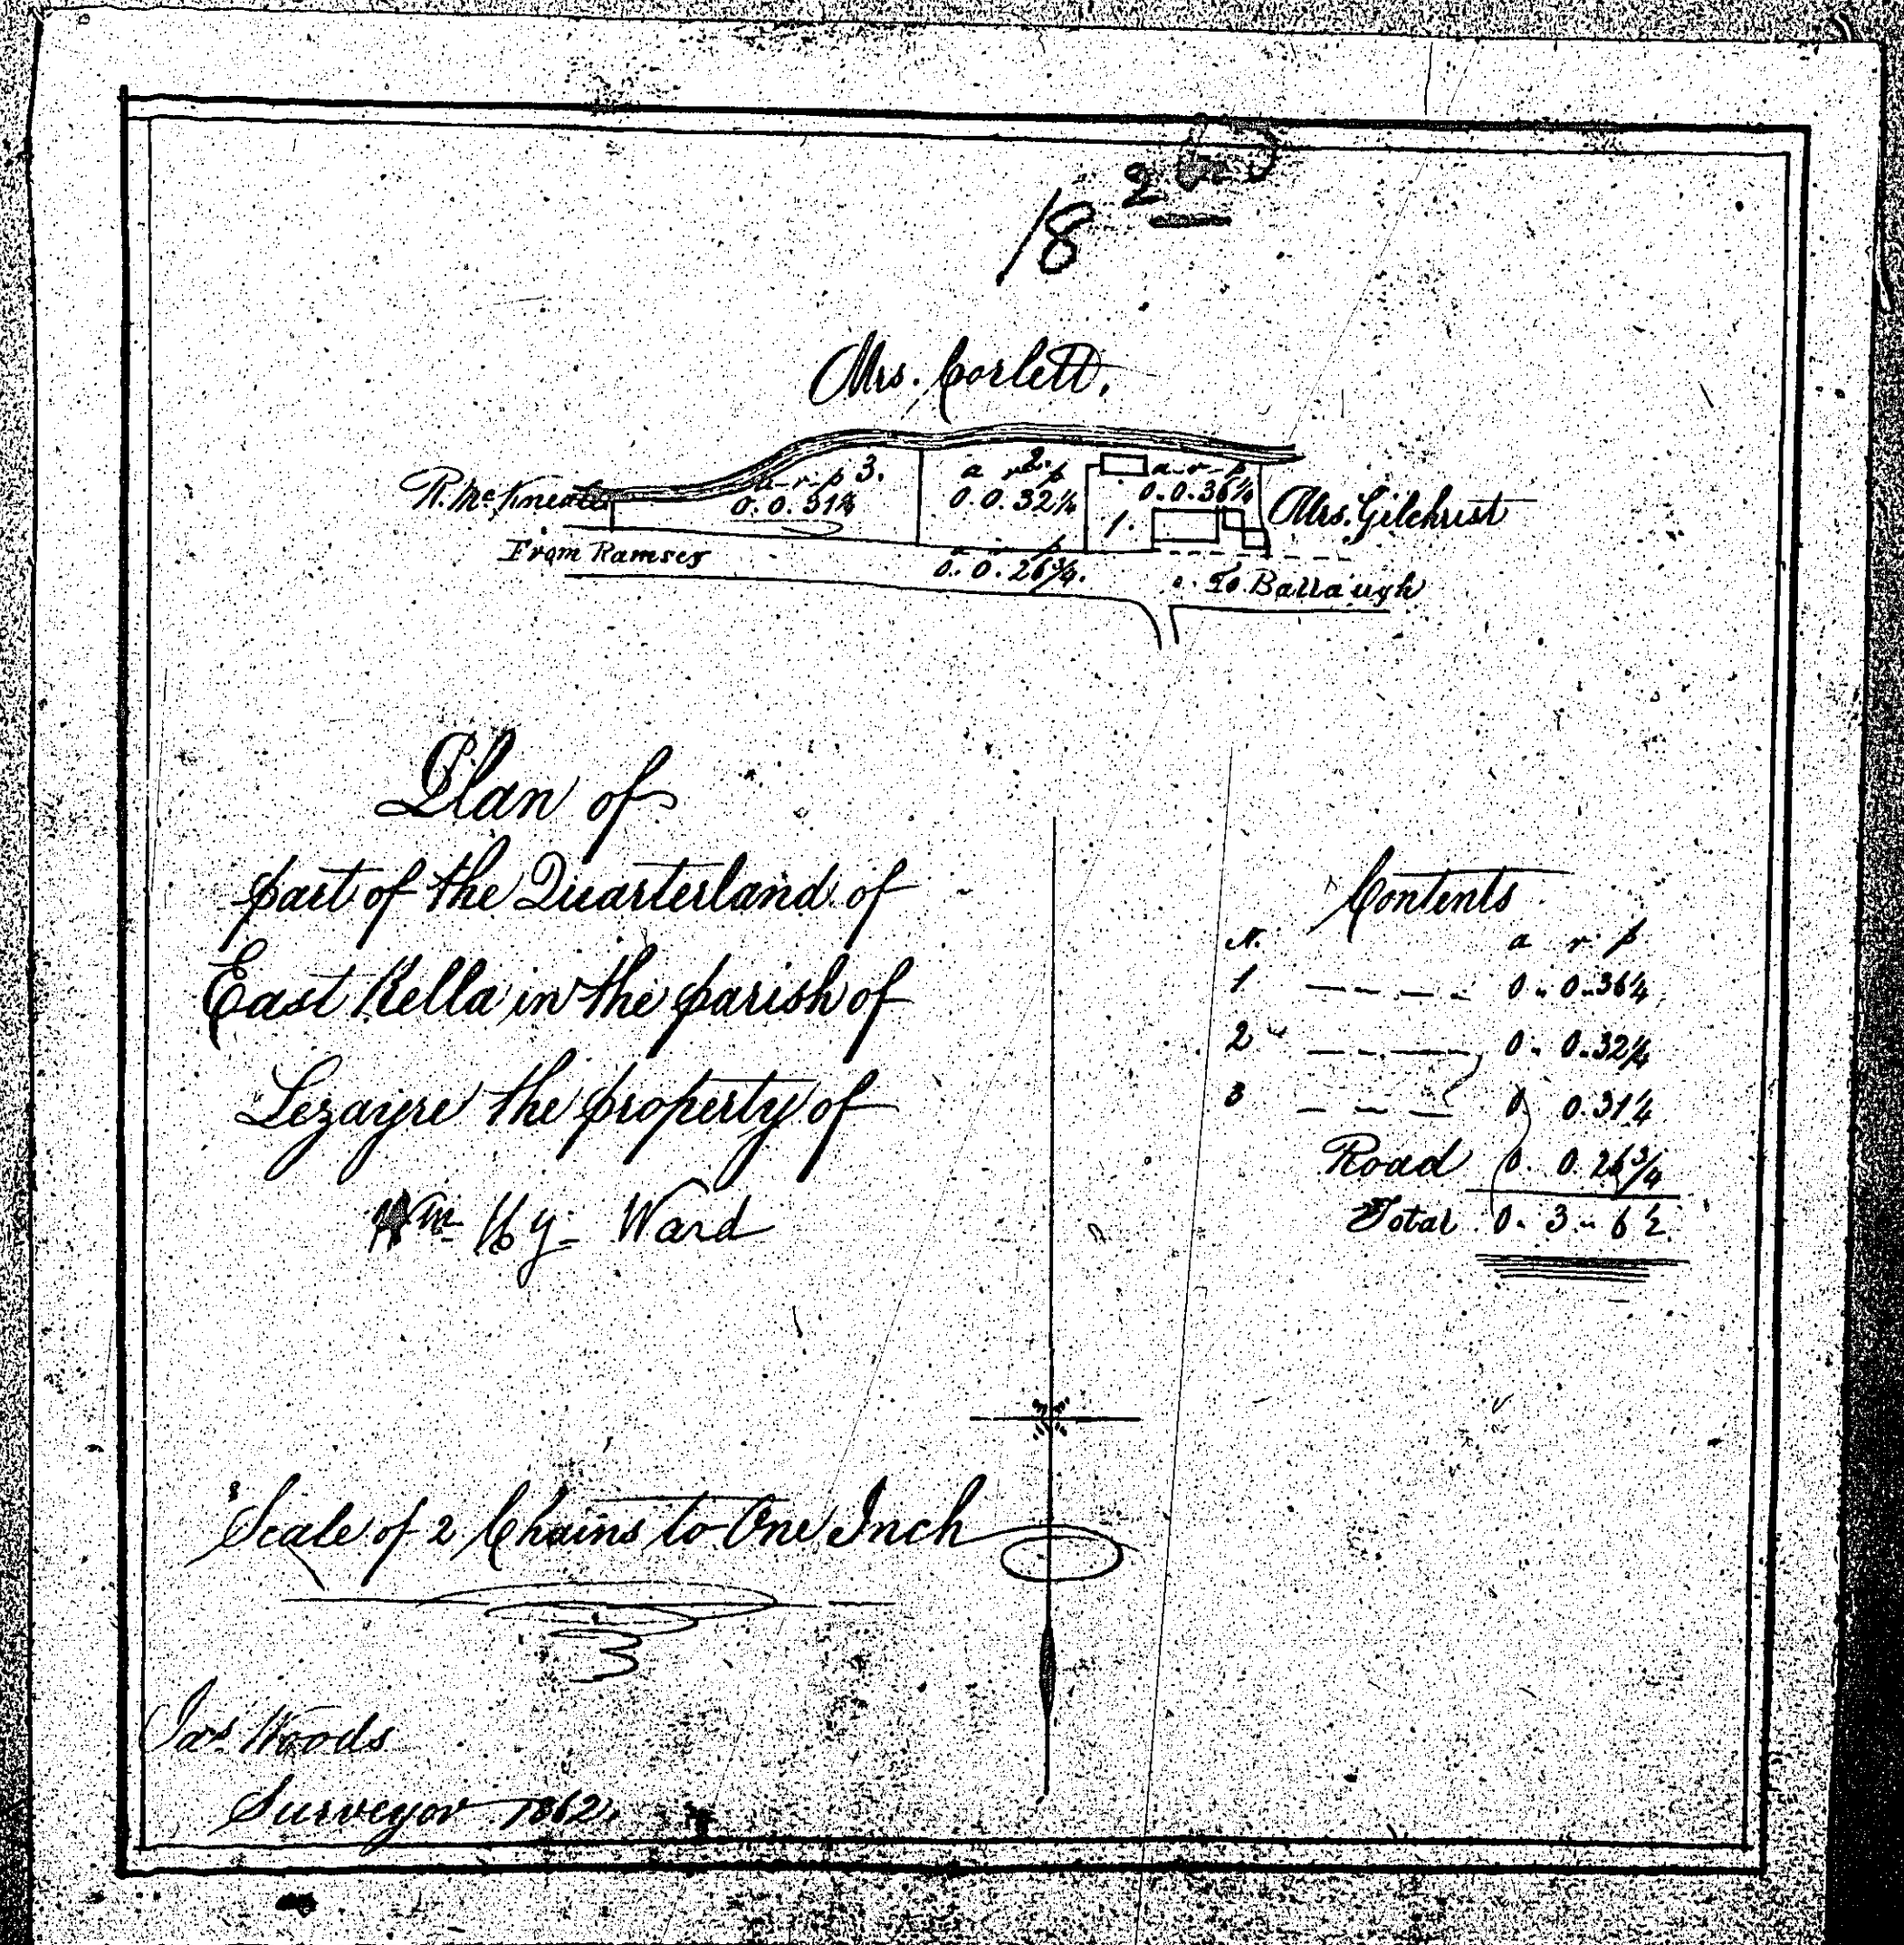 18 2
Mrs. Corlett.
R. McKneale
3.
a - r - p
0. 0. 31 1/4
2.
a r p
0. 0. 32 1/4
a - r - p
0. 0. 36 1/4
1.
Mrs. Gilchrist
From Ramsey
a r p
0. 0. 26 3/4.
To Ballaugh
Plan of
part of the Quarterland of
East Kella in the parish of
Lezayre the property of
Wm Hy Ward
Contents
N. a r p
1 - - - - 0 .. 0 .. 36 1/4
2 " - - - - 0 .. 0. 32 1/4
3 - - - 0 0. 31 1/4
Road 0. 0. 26 3/4
Total 0. 3 .. 6 1/2
Scale of 2 Chains to One Inch
Jas. Woods
Surveyor 1862.